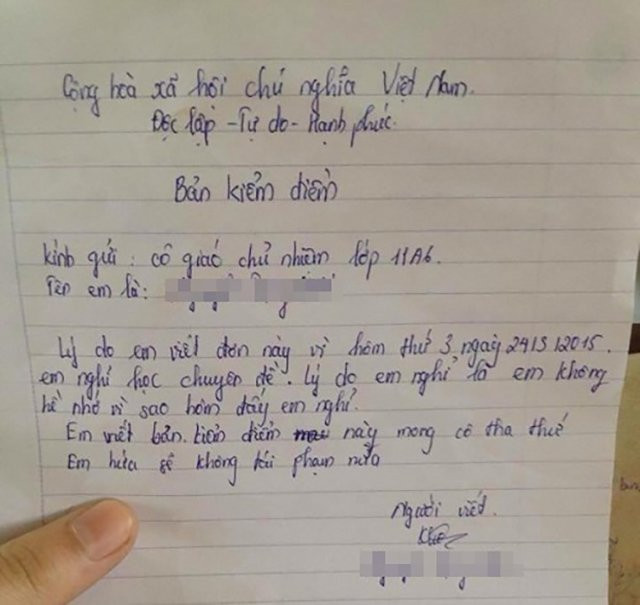 Cộng hoà xã hội chủ nghĩa Việt Nam.
Độc lập - Tự do - Hạnh phúc.
Bản kiểm điểm
kính gửi : cô giáo chủ nhiệm lớp 11A6.
Tên em là:
Lý do em viết đơn này vì hôm thứ 3, ngày 24/3/2015.
em nghỉ học chuyên đề. Lý do em nghỉ là em không
hề nhớ vì sao hôm đấy em nghỉ.
Em viết bản kiểm điểm này mong cô tha thứ
Em hứa sẽ không tái phạm nữa
Người viết.